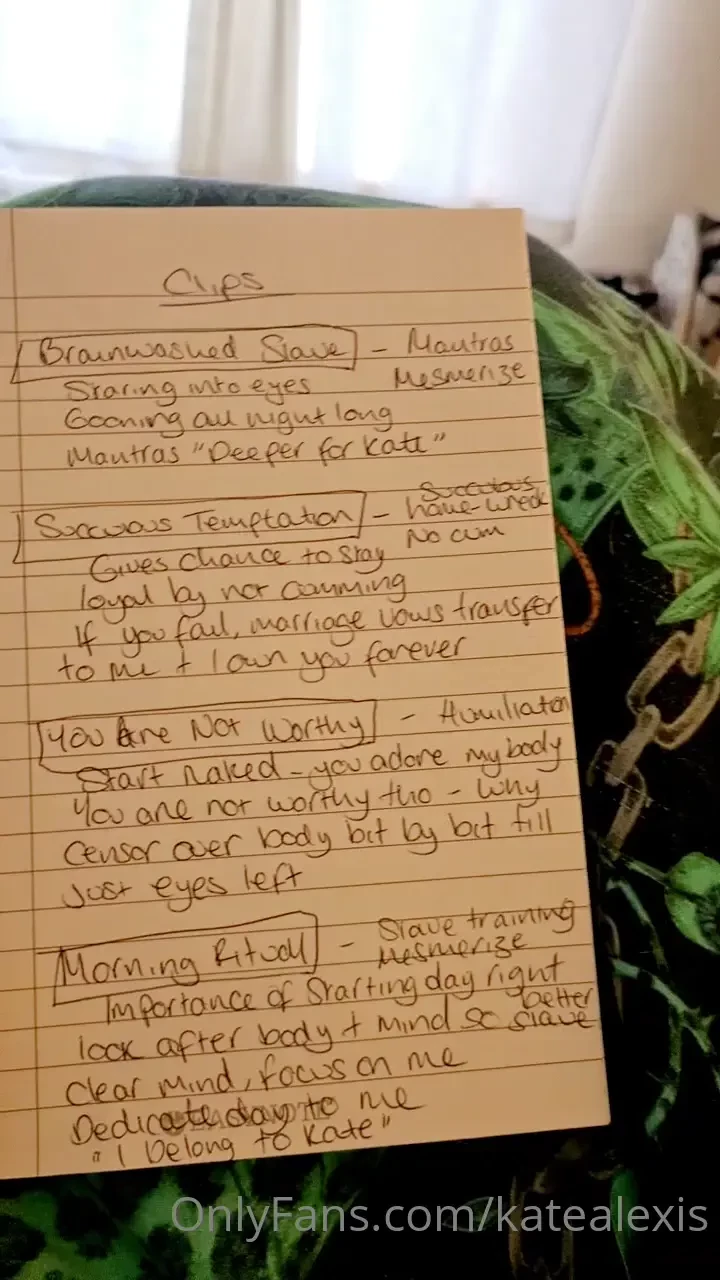 Clips
Brainwashed Slave - Mantras
Staring into eyes Mesmerize
Gooning all night long
Mantras "Deeper for Kate"
Succubus
Succubus Temptation - home-wreck
Gives chance to stay No cum
loyal by not cumming
If you fail, marriage vows transfer
to me + I own you forever
You Are Not Worthy - Humiliation
Start naked - you adore my body
You are not worthy tho - why
Censor over body bit by bit till
Just eyes left
Morning Ritual - Slave training
Mesmerize
Importance of Starting day right
look after body + mind so better slave
Clear mind, focus on me
Dedicate day to me
"I belong to Kate"
OnlyFans.com/katealexis